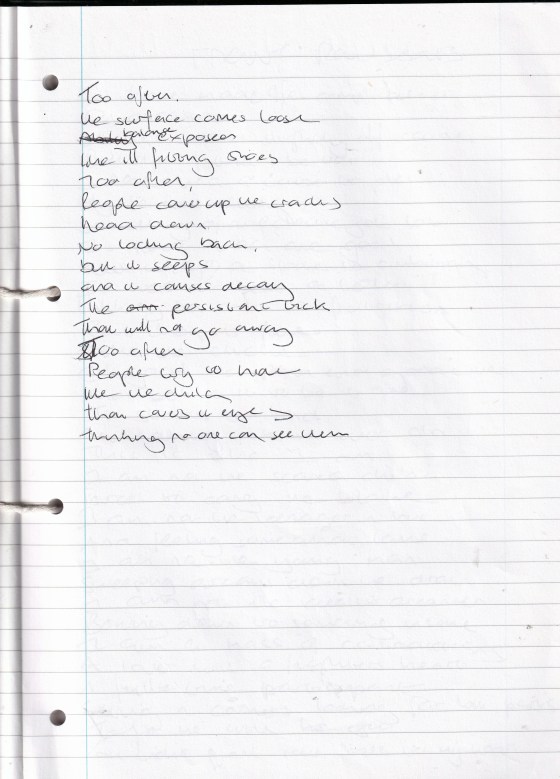 Too often.
the surface comes loose
exposed
like ill fitting shoes
Too often,
People cover up the cracks
head down
No looking back.
but it seeps
and it causes decay
The persistant tick
That will not go away
Too often
People try to hide
like the child
that covers it eyes
thinking no one can see them